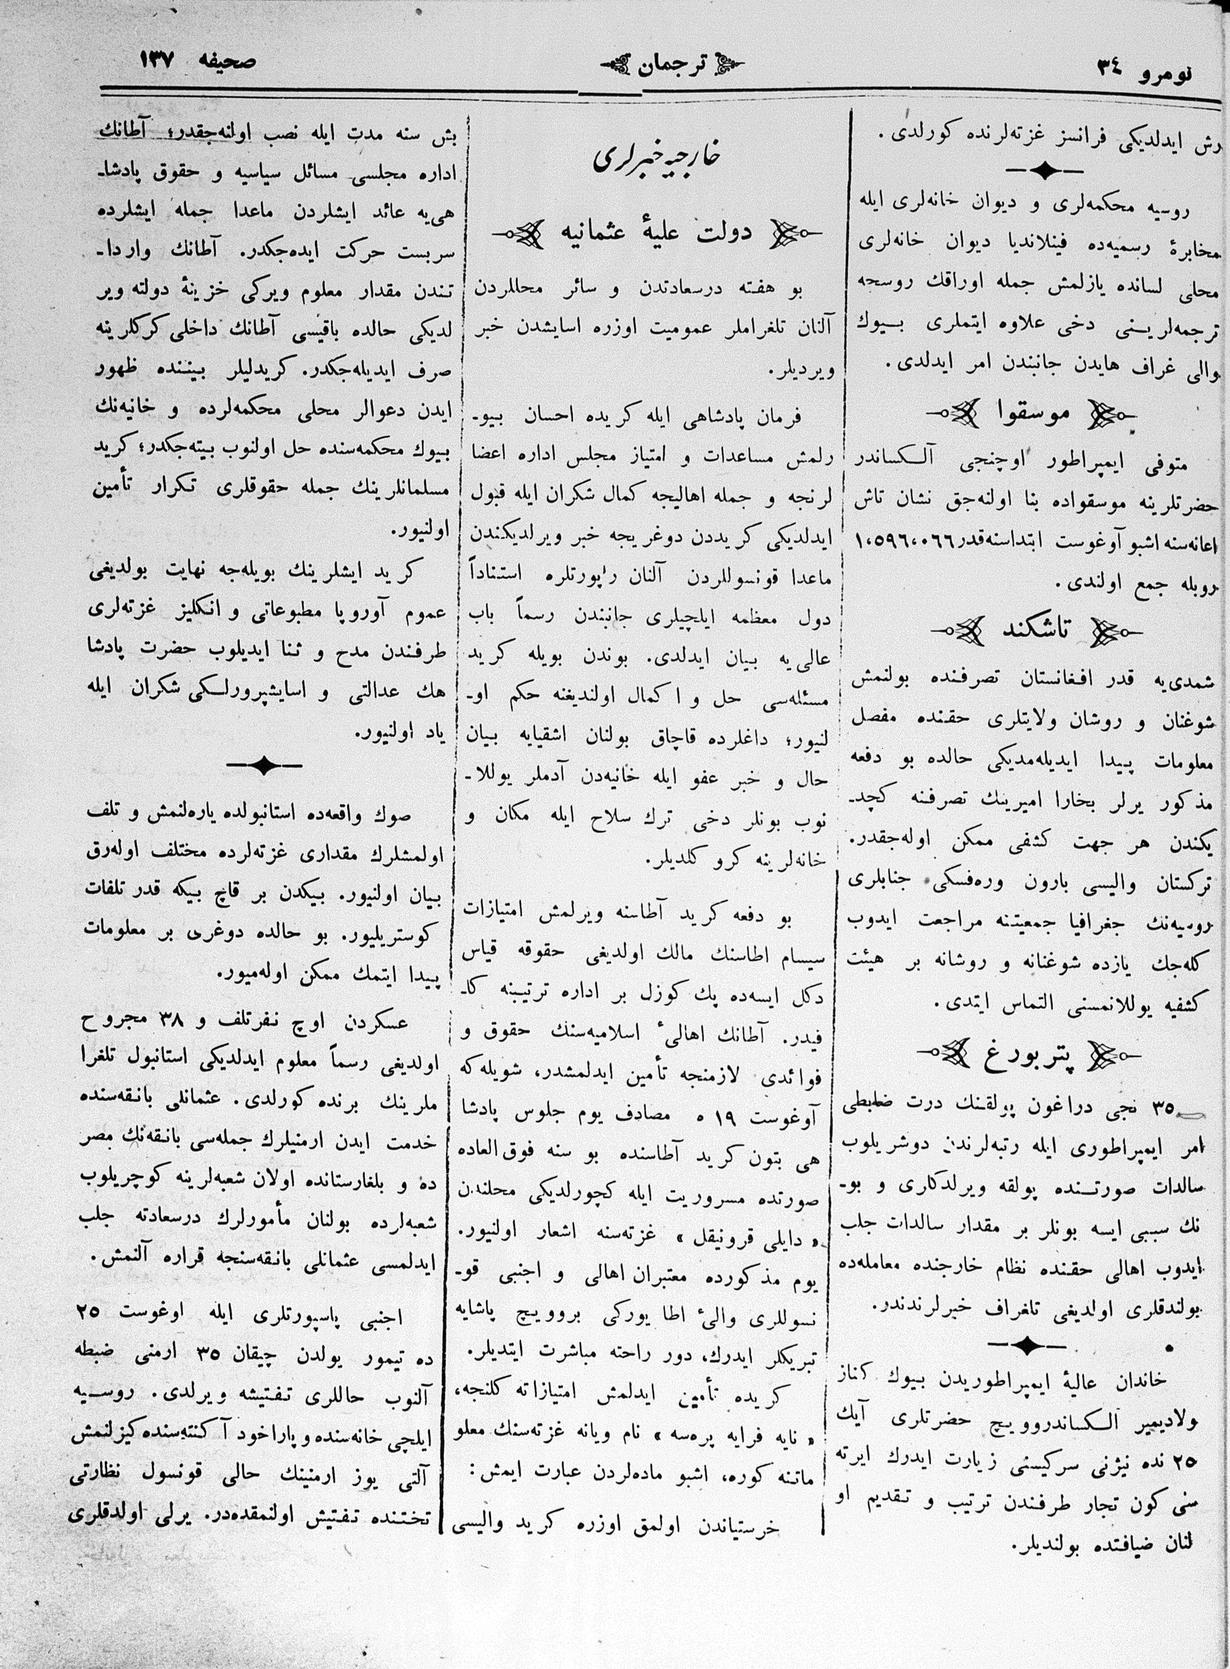 نومرو ٣٤
ترجمان
صحيفه ١٣٧
رش ايدلديكی فرانسز غزته‌لرنده كورلدی.
روسيه محكمه‌لری و ديوان خانه‌لری ايله
مخابرهٔ رسميه‌ده فينلانديا ديوان خانه‌لری
محلی لسانده يازلمش جمله اوراقك روسجه
ترجمه‌لرينی دخی علاوه ايتملری بيوك
والی غراف هايدن جانبندن امر ايدلدی.
موسقوا
متوفی ايمپراطور اوچنجی آلكساندر
حضرتلرينه موسقواده بنا اولنه‌جق نشان تاش
اعانه‌سنه اشبو آوغوست ابتداسنه‌قدر ١،٥٩٦،٠٦٦
روبله جمع اولندی.
تاشكند
شمدی‌يه قدر افغانستان تصرفنده بولنمش
شوغنان و روشان ولايتلری حقنده مفصل
معلومات پيدا ايديله‌مديكی حالده بو دفعه
مذكور يرلر بخارا اميرينك تصرفنه كچد-
يكندن هر جهت كشفی ممكن اوله‌جقدر.
تركستان واليسی بارون وره‌فسكی جنابلری
روسيه‌نك جغرافيا جمعيتنه مراجعت ايدوب
كله‌جك يازده شوغنانه و روشانه بر هيئت
كشفيه يوللانمسنی التماس ايتدی.
پتربورغ
٣٥ نجی دراغون پولقنك درت ضابطی
امر ايمپراطوری ايله رتبه‌لرندن دوشريلوب
سالدات صورتنده پولقه ويرلدكاری و بو-
نك سببی ايسه بونلر بر مقدار سالدات جلب
ايدوب اهالی حقنده نظام خارجنده معامله‌ده
بولندقلری اولديغی تلغراف خبرلرندندر.
خاندان عاليهٔ ايمپراطوريدن بيوك كناز
ولاديمير آلكساندروويچ حضرتلری آيك
٢٥ نده نيژنی سركيسنی زيارت ايدرك ايرته
سی كون تجار طرفندن ترتيب و تقديم او
لنان ضيافتده بولنديلر.
خارجيه خبرلری
دولت عليهٔ عثمانيه
بو هفته درسعادتدن و سائر محاللردن
آلنان تلغراملر عموميت اوزره اسايشدن خبر
ويرديلر.
فرمان پادشاهی ايله كريده احسان بيو-
رلمش مساعدات و امتياز مجلس اداره اعضا
لرنجه و جمله اهاليجه كمال شكران ايله قبول
ايدلديكی كريددن دوغريجه خبر ويرلديكندن
ماعدا قونسوللردن آلنان راپورتلره استناداً
دول معظمه ايلچيلری جانبندن رسماً باب
عالی‌يه بيان ايدلدی. بوندن بويله كريد
مسئله‌سی حل و اكمال اولنديغنه حكم او-
لنيور؛ داغلرده قاچاق بولنان اشقيايه بيان
حال و خبر عفو ايله خانيه‌دن آدملر يوللا-
نوب بونلر دخی ترك سلاح ايله مكان و
خانه‌لرينه كرو كلديلر.
بو دفعه كريد آطاسنه ويرلمش امتيازات
سيسام اطاسنك مالك اولديغی حقوقه قياس
دكل ايسه‌ده پك كوزل بر اداره ترتيبنه كا-
فيدر. آطانك اهالیٔ اسلاميه‌سنك حقوق و
فوائدی لازمنجه تأمين ايدلمشدر، شويله‌كه
آوغوست ١٩ ه مصادف يوم جلوس پادشا
هی بتون كريد آطاسنده بو سنه فوق‌العاده
صورتده مسروريت ايله كچورلديكی محلندن
« دايلی قرونيقل » غزته‌سنه اشعار اولنيور.
يوم مذكورده معتبران اهالی و اجنبی قو-
نسوللری والیٔ اطا يوركی بروويچ پاشايه
تبريكلر ايدرك، دور راحته مباشرت ايتديلر.
كريده تأمين ايدلمش امتيازاته كلنجه،
« نايه فرايه پره‌سه » نام ويانه غزته‌سنك معلو
ماتنه كوره، اشبو ماده‌لردن عبارت ايمش:
خرستياندن اولمق اوزره كريد واليسی
بش سنه مدت ايله نصب اولنه‌جقدر؛ آطانك
اداره مجلسی مسائل سياسيه و حقوق پادشا-
هی‌يه عائد ايشلردن ماعدا جمله ايشلرده
سربست حركت ايده‌جكدر. آطانك واردا-
تندن مقدار معلوم ويركی خزينهٔ دولته وير
لديكی حالده باقيسی آطانك داخلی كركلرينه
صرف ايديله‌جكدر. كريدليلر بيننده ظهور
ايدن دعوالر محلی محكمه‌لرده و خانيه‌نك
بيوك محكمه‌سنده حل اولنوب بيته‌جكدر؛ كريد
مسلمانلرينك جمله حقوقلری تكرار تأمين
اولنيور.
كريد ايشلرينك بويله‌جه نهايت بولديغی
عموم آوروپا مطبوعاتی و انكليز غزته‌لری
طرفندن مدح و ثنا ايديلوب حضرت پادشا
هك عدالتی و اسايشپرورلكی شكران ايله
ياد اولنيور.
صوك واقعه‌ده استانبولده ياره‌لنمش و تلف
اولمشلرك مقداری غزته‌لرده مختلف اوله‌رق
بيان اولنيور. بيكدن بر قاچ بيكه قدر تلفات
كوستريليور. بو حالده دوغری بر معلومات
پيدا ايتمك ممكن اوله‌ميور.
عسكردن اوچ نفرتلف و ٣٨ مجروح
اولديغی رسماً معلوم ايدلديكی استانبول تلغرا
ملرينك برنده كورلدی. عثمانلی بانقه‌سنده
خدمت ايدن ارمنيلرك جمله‌سی بانقه‌نك مصر
ده و بلغارستانده اولان شعبه‌لرينه كوچريلوب
شعبه‌لرده بولنان مأمورلرك درسعادته جلب
ايدلمسی عثمانلی بانقه‌سنجه قراره آلنمش.
اجنبی پاسپورتلری ايله اوغوست ٢٥
ده تيمور يولدن چيقان ٣٥ ارمنی ضبطه
آلنوب حاللری تفتيشه ويرلدی. روسيه
ايلچی خانه‌سنده و پاراخود آكنته‌سنده كيزلنمش
آلتی يوز ارمنينك حالی قونسول نظارتی
تختنده تفتيش اولنمقده‌در. يرلی اولدقلری